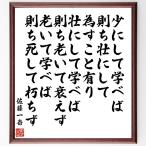 少にして学べば
則ち壮にして
為すこと有り
壮にして学べば
則ち老いて衰えず
老いて学べば
則ち死して朽ちず
佐藤一斎